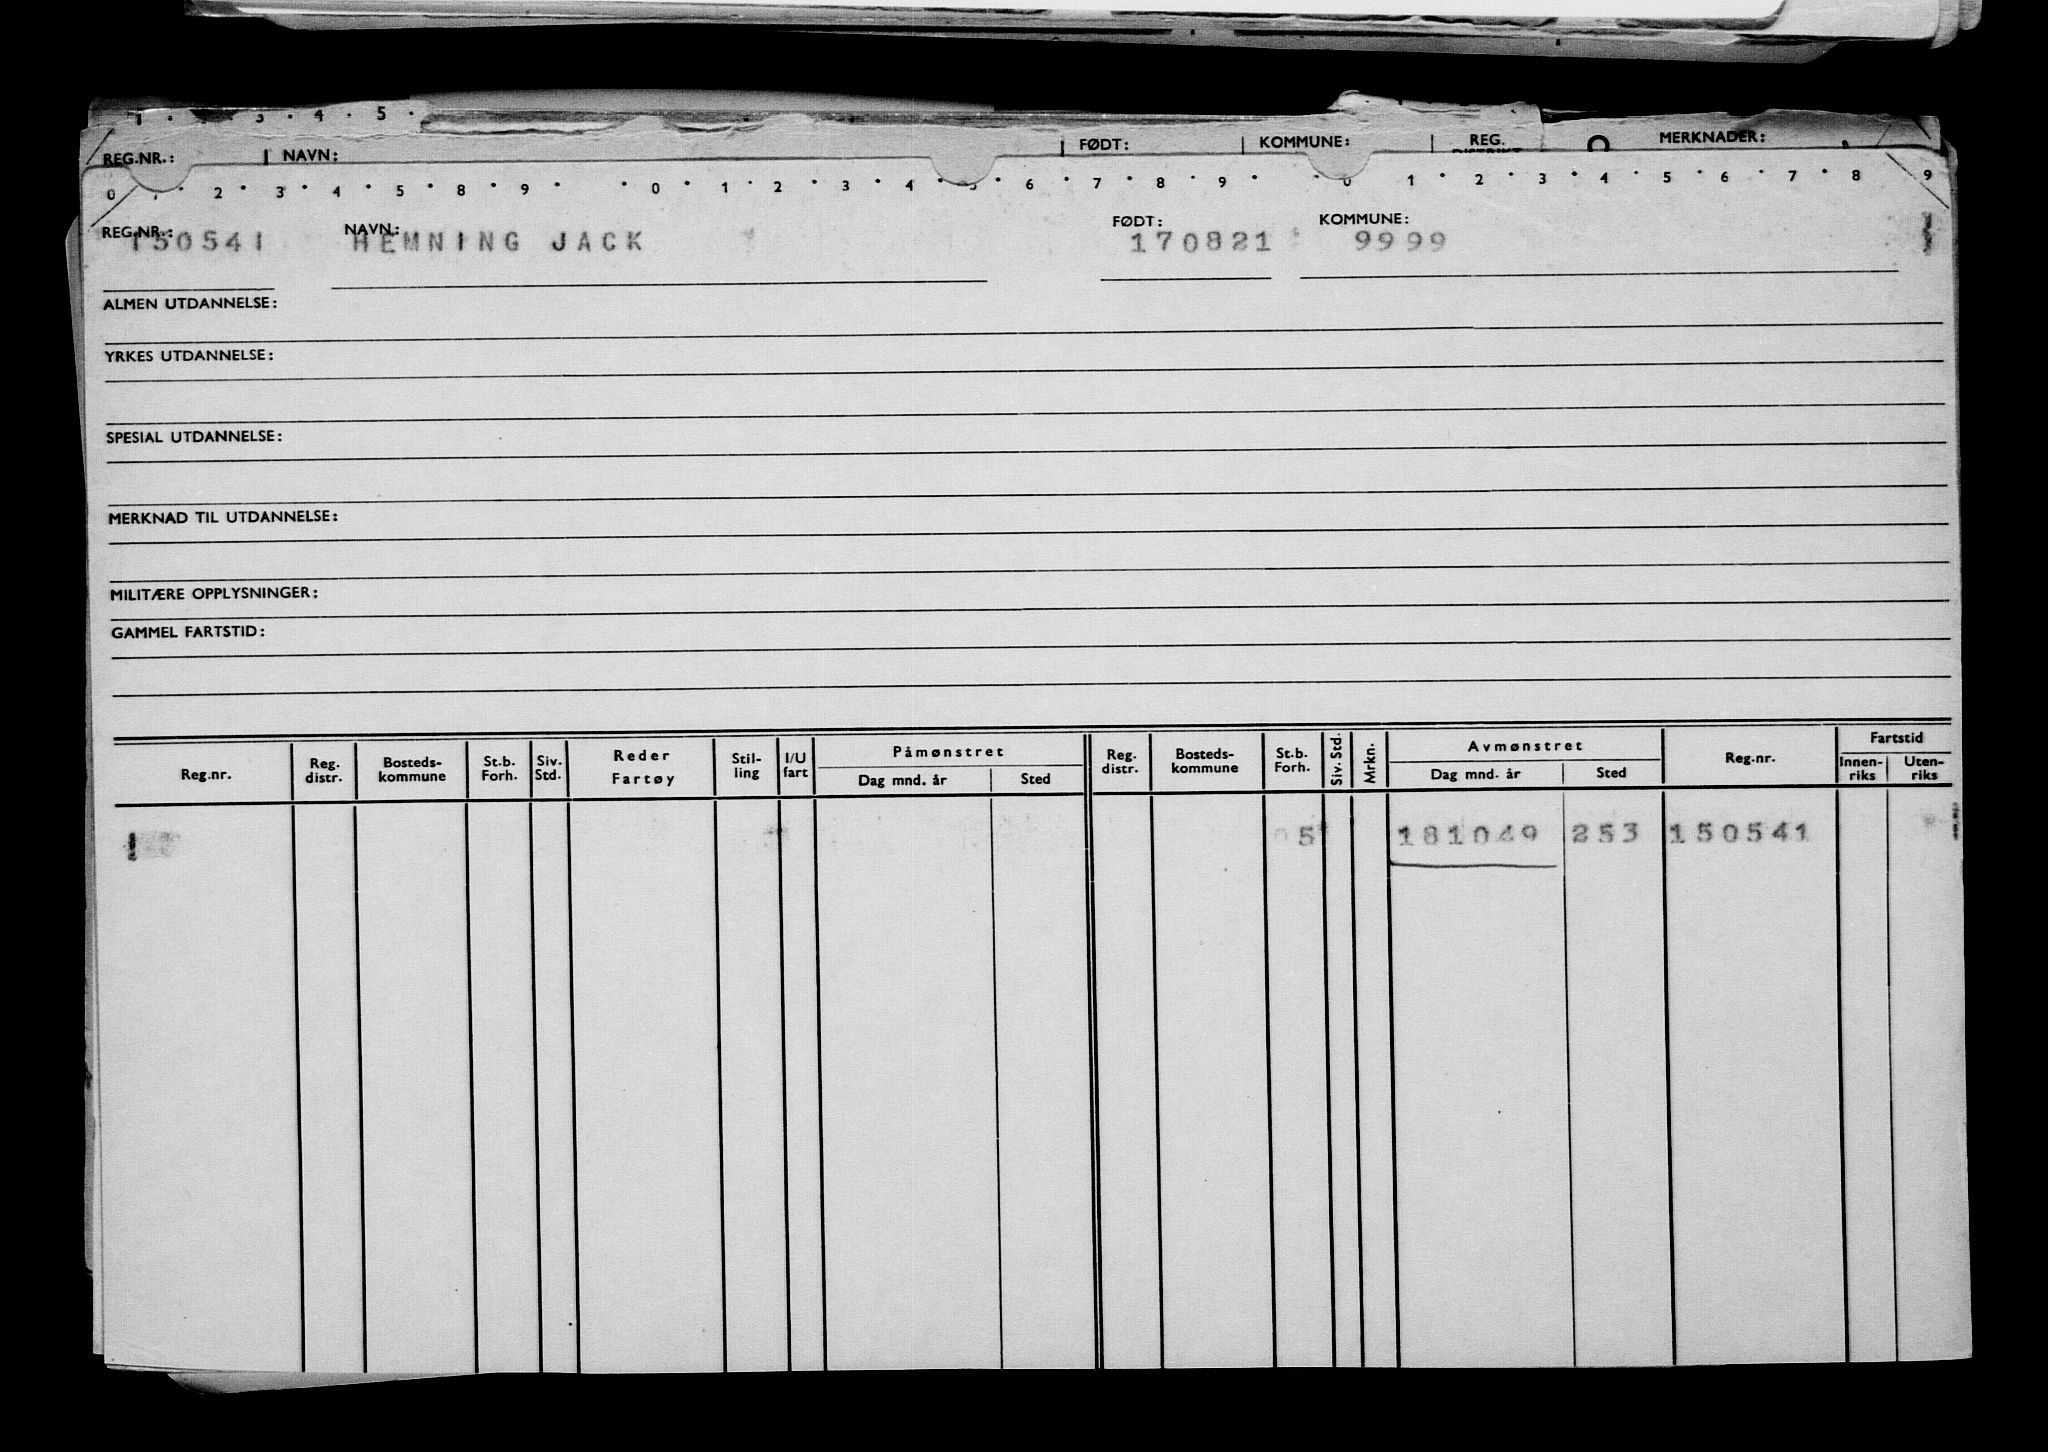 1 . 3 . 4 . 5 .
REG.NR.: NAVN: FØDT: KOMMUNE: REG. MERKNADER:
0 . 2 . 3 . 4 . 5 . 8 . 9 . . 0 . 1 . 2 . 3 . 4 . 5 . 6 . 7 . 8 . 9 . . 0 1 . 2 . 3 . 4 . 5 . 6 . 7 . 8 9
REG.NR.: NAVN: FØDT: KOMMUNE:
150541 HEMNING JACK 170821 9999
ALMEN UTDANNELSE:
YRKES UTDANNELSE:
SPESIAL UTDANNELSE:
MERKNAD TIL UTDANNELSE:
MILITÆRE OPPLYSNINGER:
GAMMEL FARTSTID:
Reg.nr. Reg. distr. Bosteds-kommune St.b. Forh. Siv. Std. Reder Fartøy Stil-ling I/U fart Påmønstret Dag mnd. år Sted Reg. distr. Bosteds-kommune St.b. Forh. Siv. Std. Mrkn. Avmønstret Dag mnd. år Sted Reg.nr. Fartstid Innen-riks Uten-riks
05 181049 253 150541